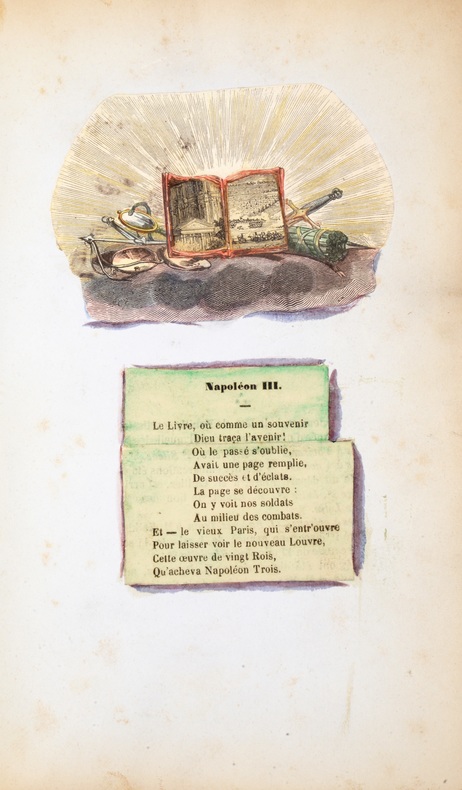 Napoléon III.
Le Livre, où comme un souvenir
Dieu traça l'avenir!
Où le passé s'oublie,
Avait une page remplie,
De succès et d'éclats.
La page se découvre :
On y voit nos soldats
Au milieu des combats.
Et — le vieux Paris, qui s'entr'ouvre
Pour laisser voir le nouveau Louvre,
Cette œuvre de vingt Rois,
Qu'acheva Napoléon Trois.